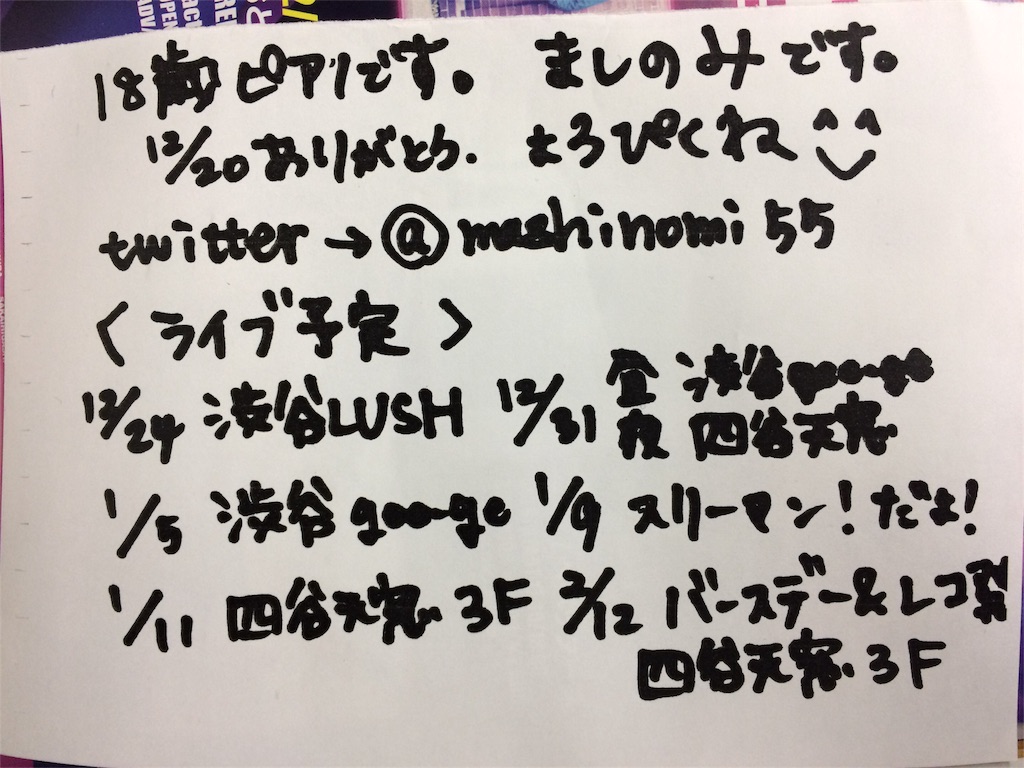 18歳ピアノです。 ましのみです。
12/20ありがとう. よろぴくね
twitter→@mashinomi55
〈ライブ予定〉
12/24 渋谷LUSH 12/31 昼 渋谷gee-ge
夜 四谷天窓
1/5 渋谷gee-ge 1/9 スリーマン!だよ!
1/11 四谷天窓.3F 2/12 バースデー&レコ発
四谷天窓.3F